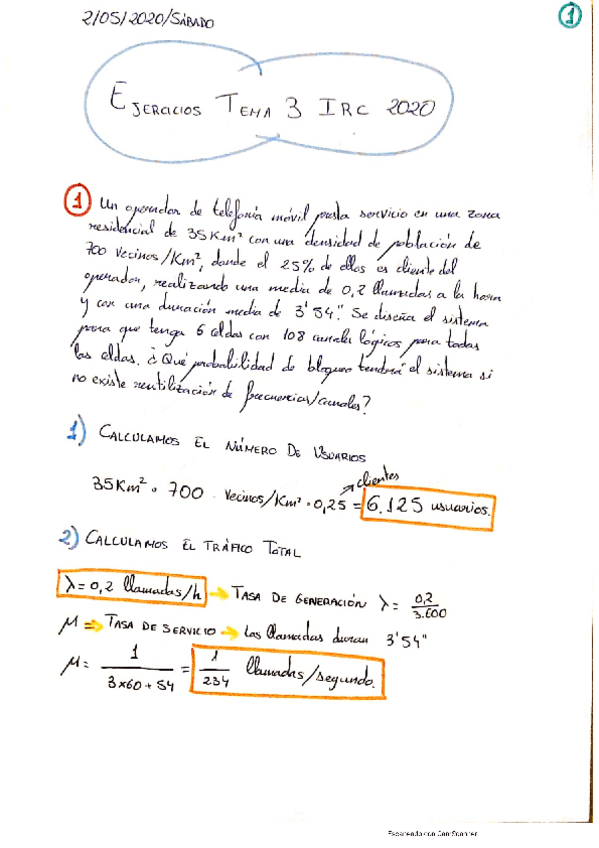 2/05/2020/SÁBADO
1
EJERCICIOS TEMA 3 IRC 2020
1 Un operador de telefonía móvil presta servicio en una zona
residencial de 35Km² con una densidad de población de
700 vecinos/Km², donde el 25% de ellos es cliente del
operador, realizando una media de 0,2 llamadas a la hora
y con una duración media de 3'54". Se diseña el sistema
para que tenga 6 celdas con 108 canales lógicos para todas
las celdas. ¿Qué probabilidad de bloqueo tendrá el sistema si
no existe reutilización de frecuencias/canales?
1) CALCULAMOS EL NÚMERO DE USUARIOS
clientes
35Km² · 700 vecinos/Km² · 0,25 = 6.125 usuarios.
2) CALCULAMOS EL TRÁFICO TOTAL
λ = 0,2 llamadas/h → TASA DE GENERACIÓN λ = 0,2/3.600
μ ⇒ TASA DE SERVICIO → Las llamadas duran 3'54"
μ = 1/3x60+54 = 1/234 llamadas/segundo.
Escaneado con CamScanner